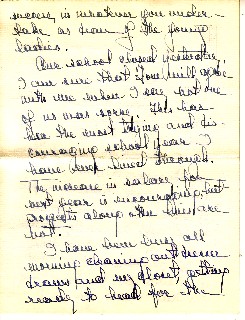 success in whatever you under-
take as from of the young
ladies.
Our school closed yesterday,
I am sure that you will agree
with me when I say not one
of us was sorry. This has
been the most trying and dis-
couraging school year I
have ever lived through.
The increase in salary for
next year is encouraging, but
prospects along other lines are
not.
I have been busy all
morning cleaning out
drawers and my closet, getting
ready to head for the